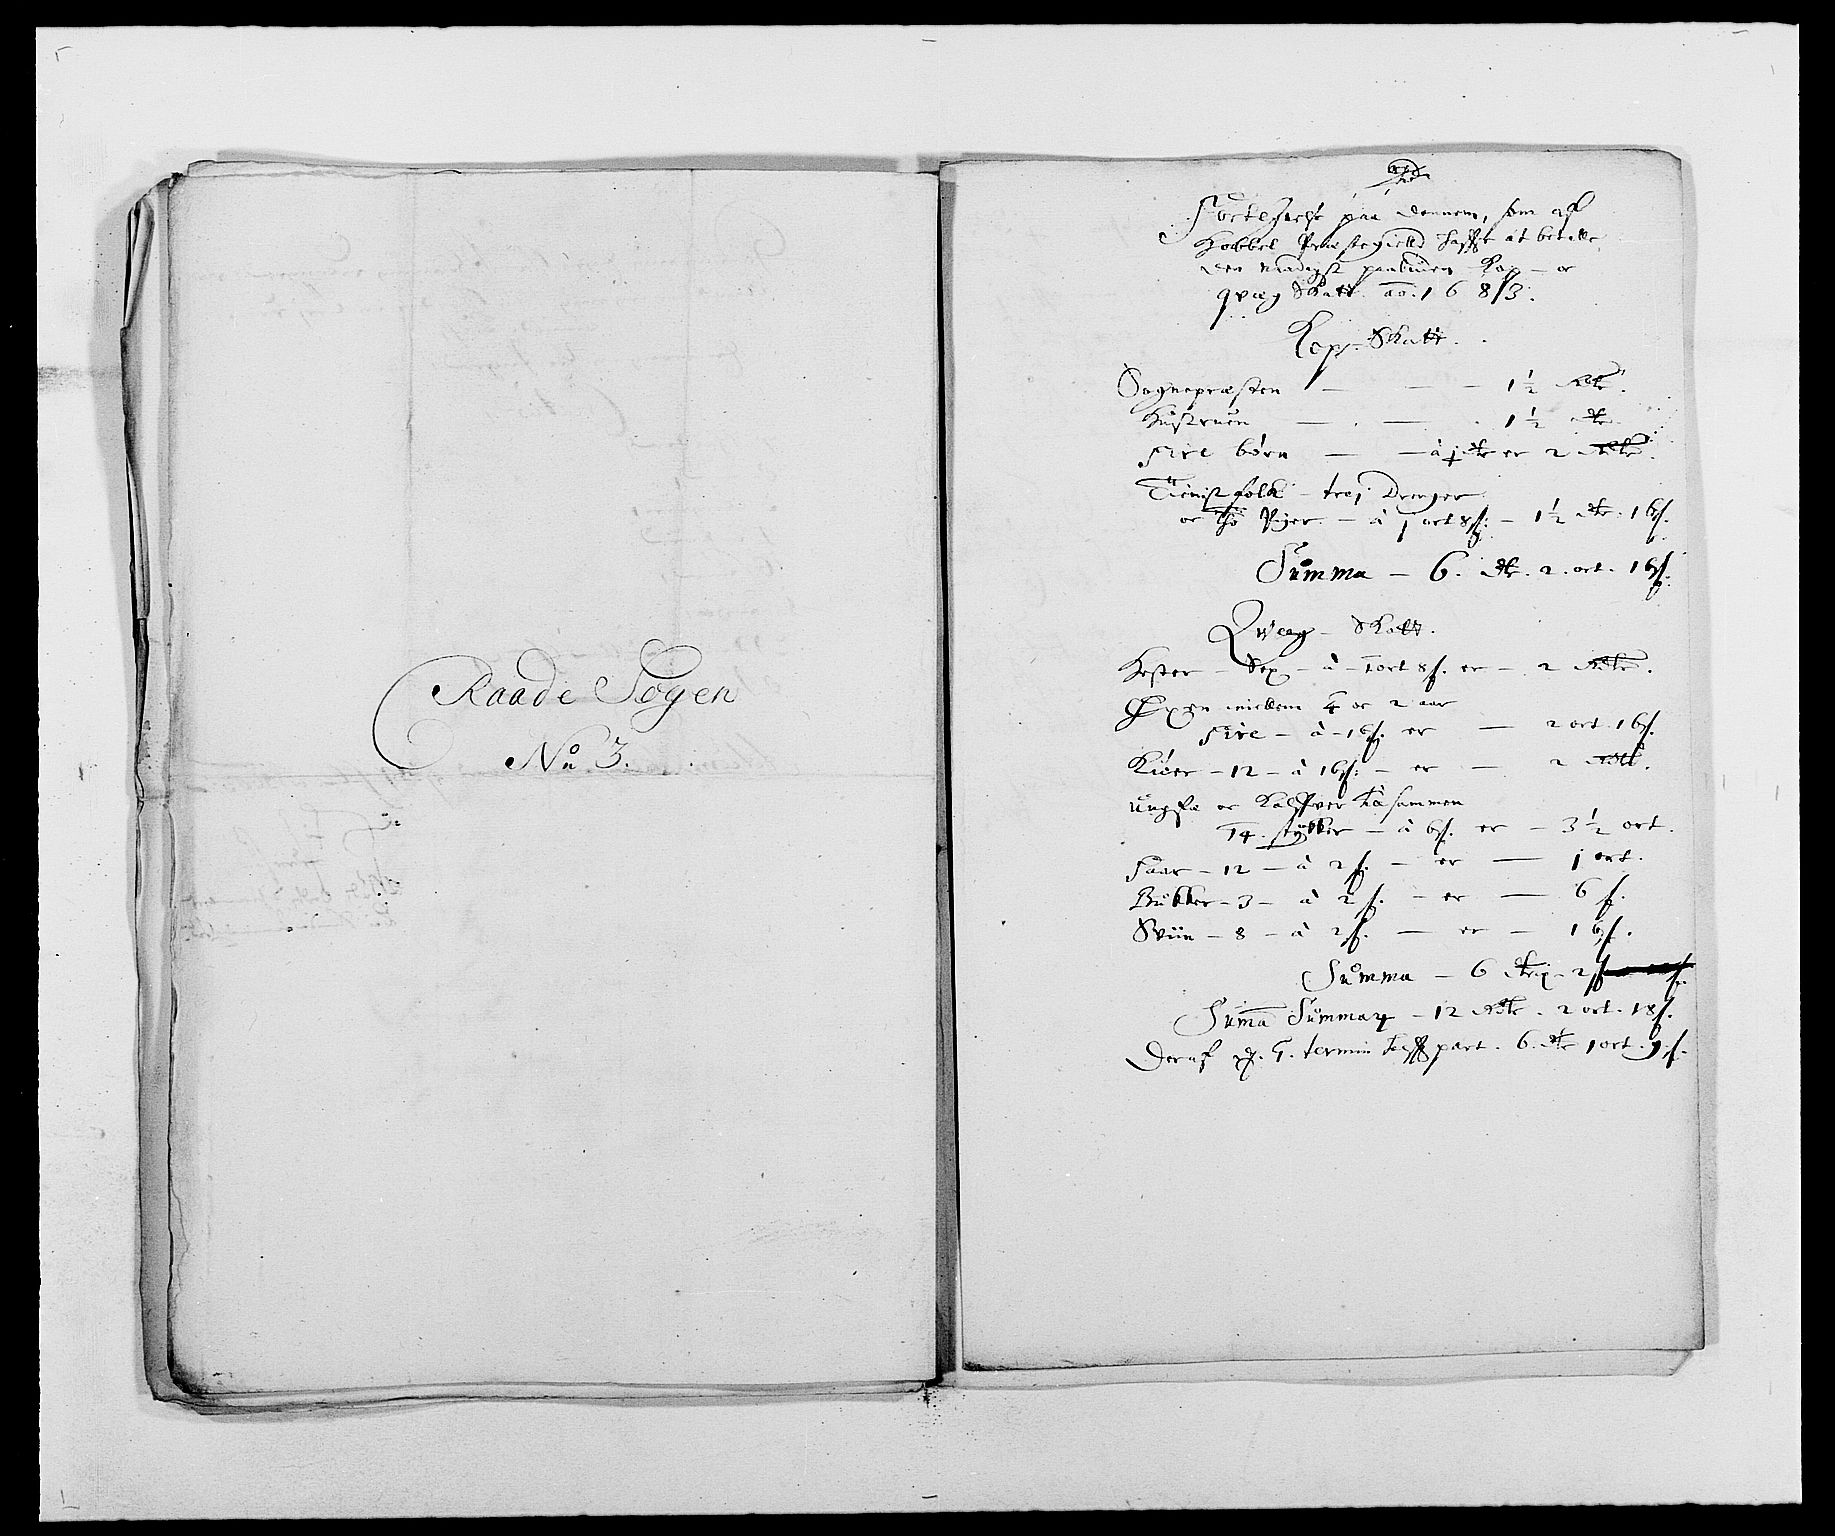 Raade Sogen
No 3.
Fortegnelse paa dennem, som af
Præstegield hafr at betalle
den naadigst paabuden Kop - oc
qvæg Skatt. ao. 1683.
Kop-Skatt.
Sognepræsten — — — 1 1/2 Rdr.
Hustruen — — 1 1/2 dr.
Fire børn — — à 1/2 dr er 2 Rdr.
Tienistfolk - trej Drenger
oc tho Piger - à 1 ort 8 s. - 1 1/2 dr. 16 s.
Summa — 6. dr. 2. ort. 16 s.
Qvæg - Skatt.
Hester - Sex - à - 1 ort 8 s. er - 2 Rdr.
Øxen mellem 4 oc 2 aar
Fire - à - 16 s. er — 2 ort. 16 s.
Kiøer - 12 - à 16 s. - er — 2 Rdr.
Ungfæ oc Kalffver tilsammen
14. stÿkker - à 6 s. er - 3 1/2 ort.
Faar - 12 - à 2 s. - er — 1 ort.
Bukker - 3 - à 2 s. - er — 6 s.
Sviin - 8 - à 2 s. — er — 16 s.
Summa — 6 dr. 2 s.
Suma Summar - 12 Rdr. 2 ort. 18 s.
Deraf termin part. 6. dr 1 ort. 9 s.